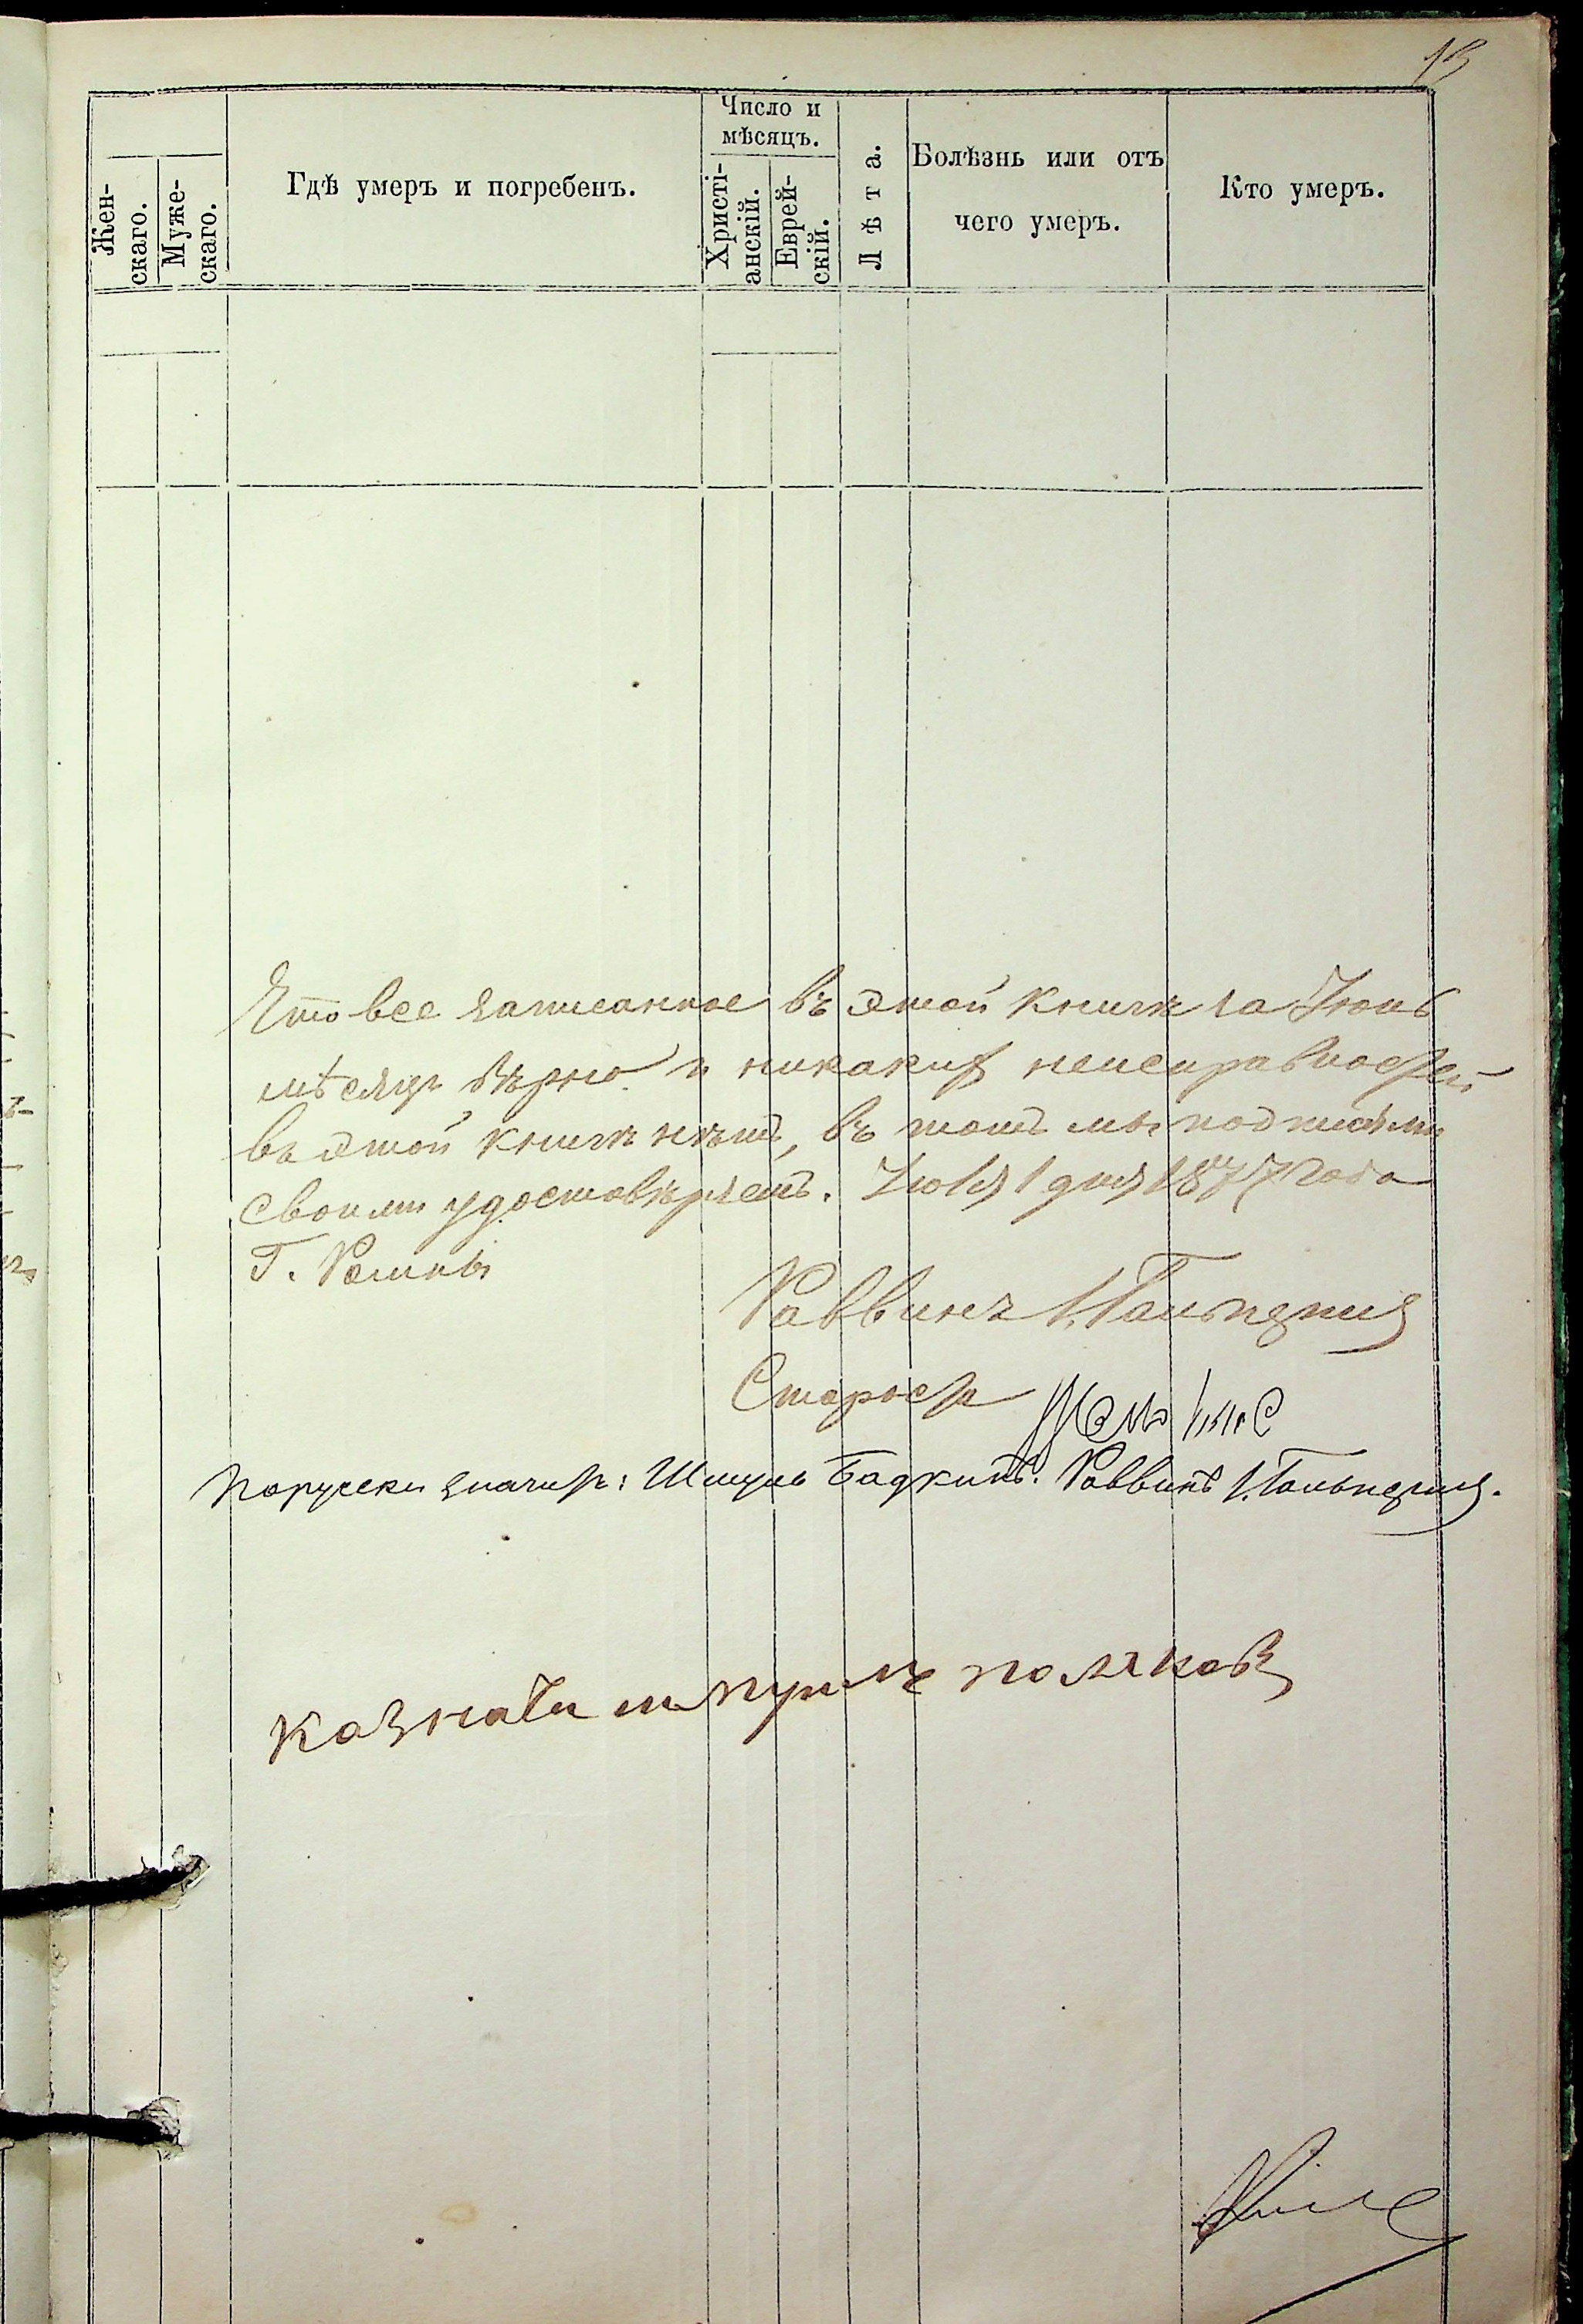 13
Жен-
скаго.
Муже-
скаго.
Гдѣ умеръ и погребенъ.
Число и
мѣсяцъ.
Христі-
анскій.
Еврей-
скій.
Лѣта.
Болѣзнь или отъ
чего умеръ.
Кто умеръ.
Что все записанное въ этой книгѣ за Іюнь
мѣсяцъ вѣрно и никакихъ неисправностей
въ этой книгѣ нѣтъ, въ томъ мы подписями
своими удостовѣряемъ. Іюля 1 дня 1877 года
Г. Ромны
Раввинъ І. Гальперинъ
Староста
По русски значитъ: Шмуль Бадкинъ. Раввинъ І. Гальперинъ.
казначи поляков